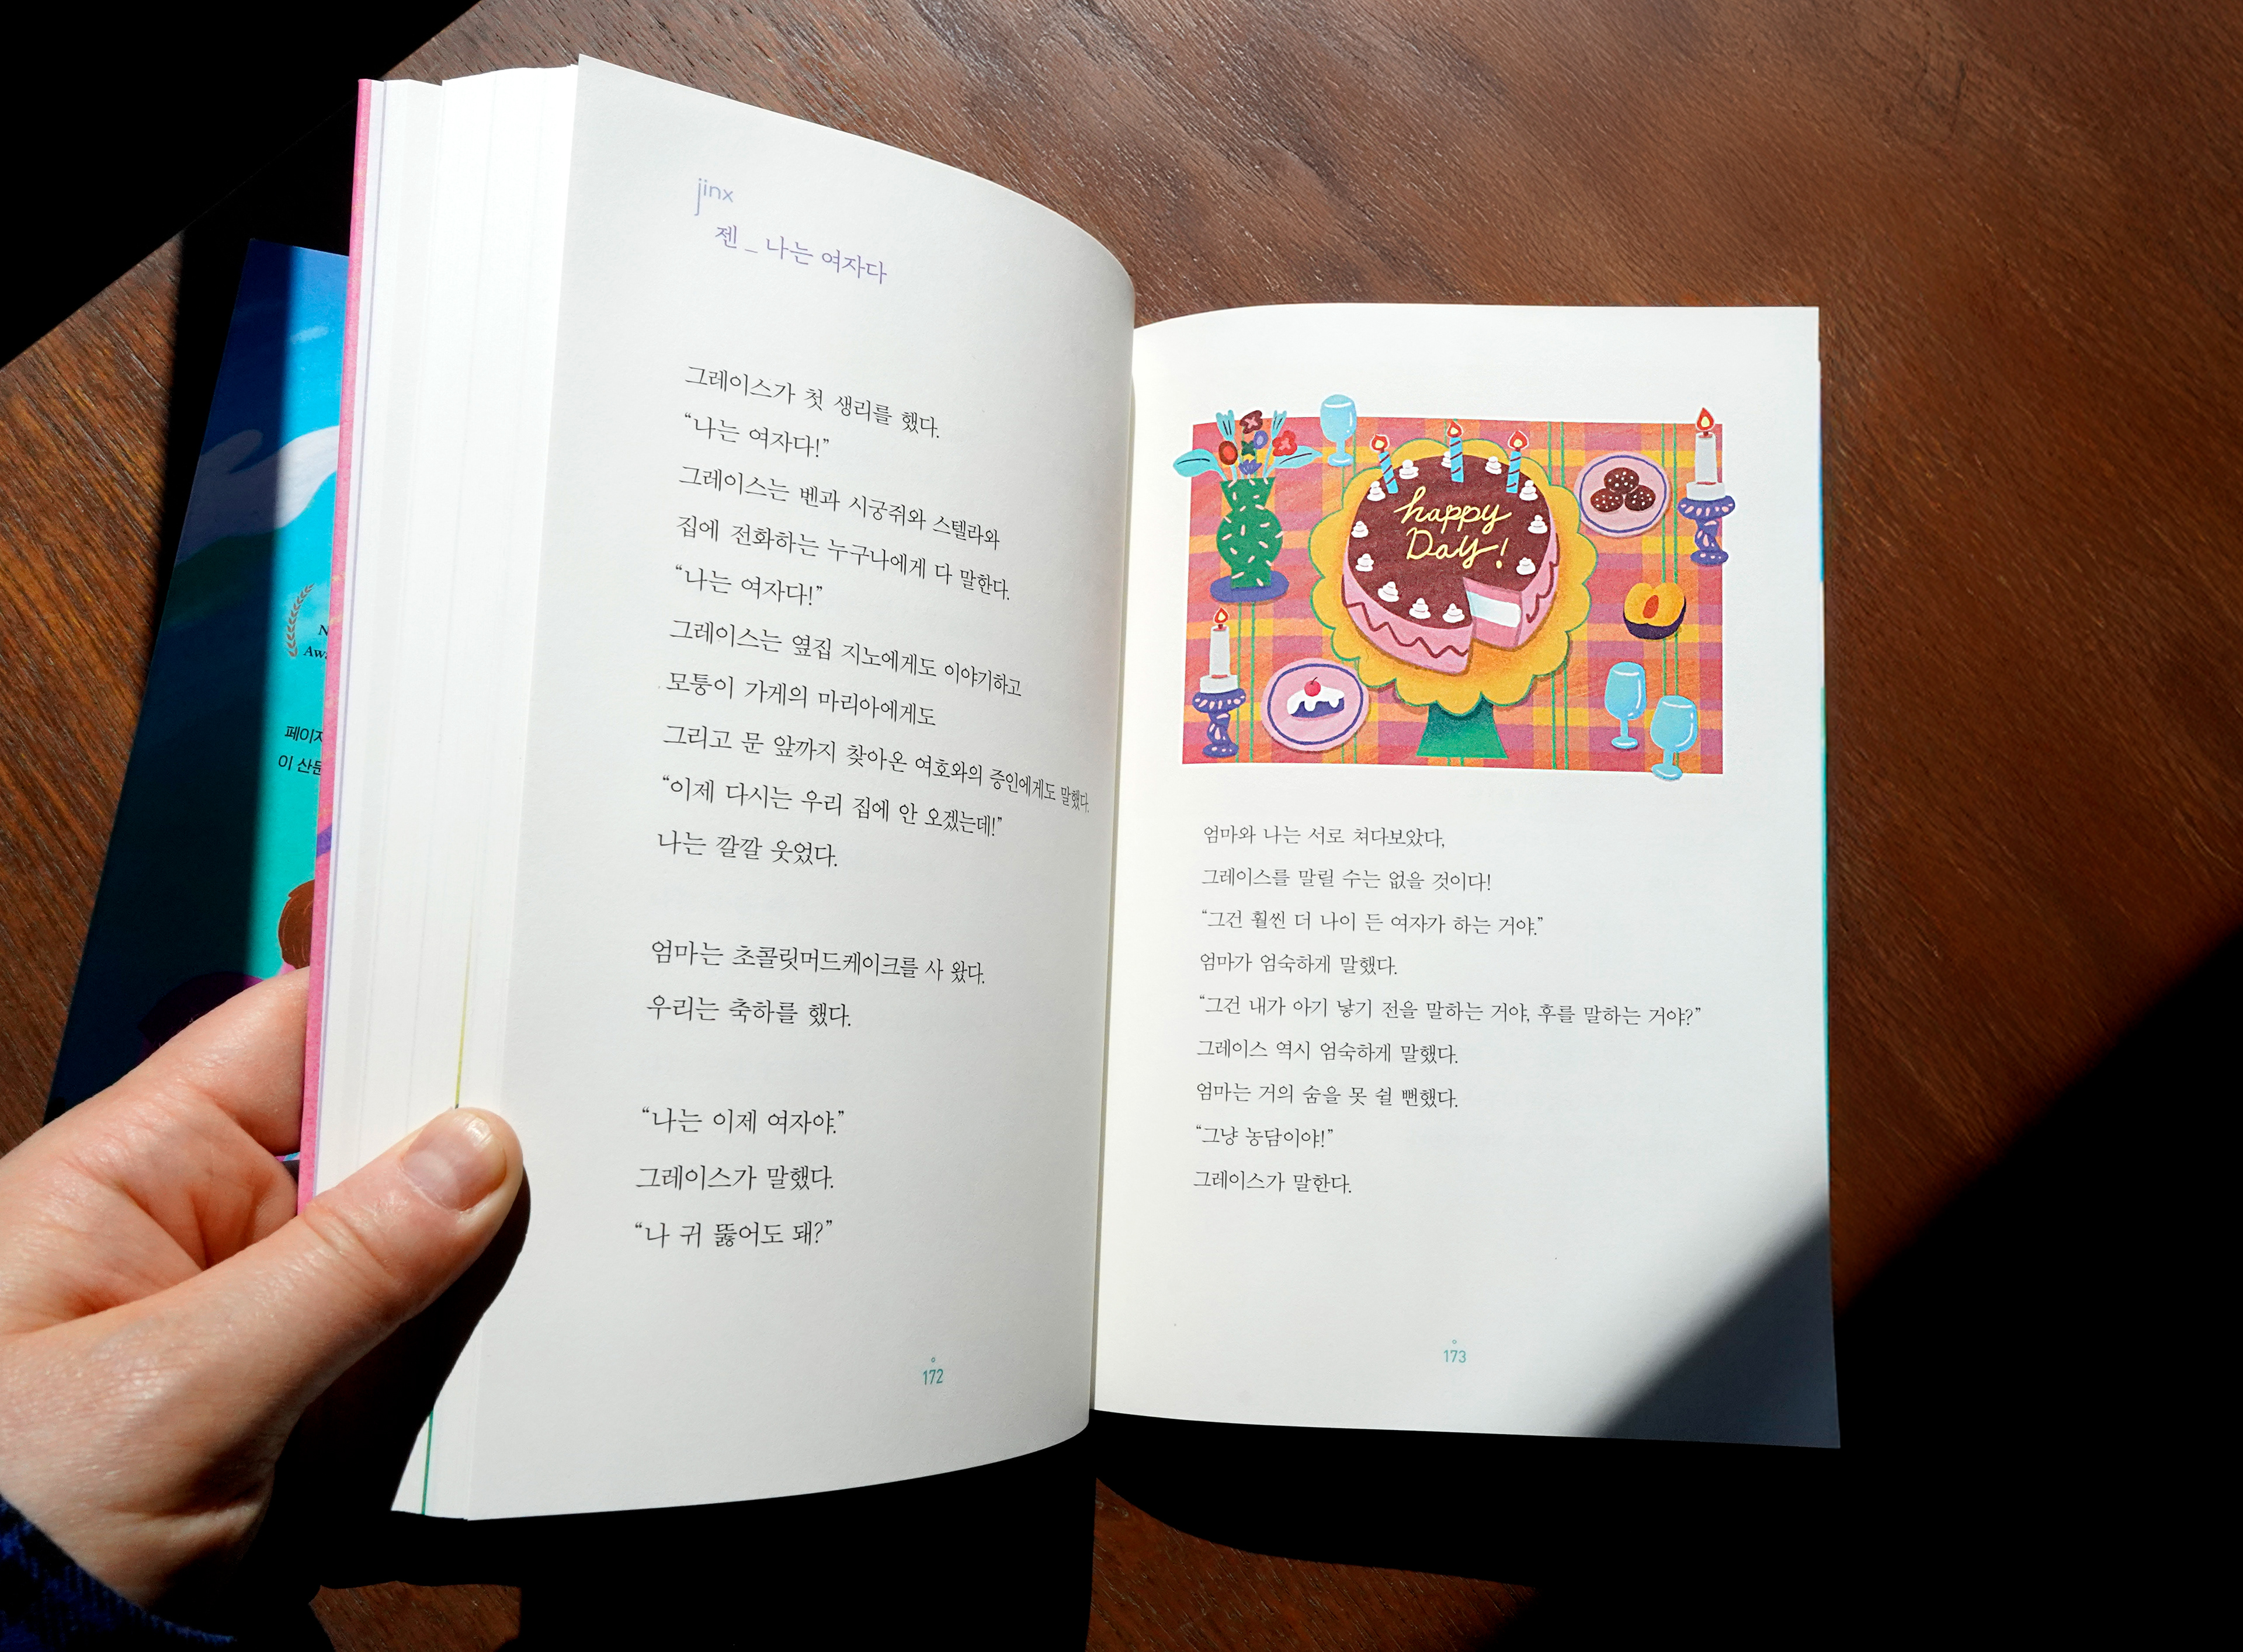 N
Awa
페이지
이 산문
jinx
젠 _ 나는 여자다
그레이스가 첫 생리를 했다.
“나는 여자다!”
그레이스는 벤과 시궁쥐와 스텔라와
집에 전화하는 누구나에게 다 말한다.
“나는 여자다!”
그레이스는 옆집 지노에게도 이야기하고
모퉁이 가게의 마리아에게도
그리고 문 앞까지 찾아온 여호와의 증인에게도 말했다.
“이제 다시는 우리 집에 안 오겠는데!”
나는 깔깔 웃었다.
엄마는 초콜릿머드케이크를 사 왔다.
우리는 축하를 했다.
“나는 이제 여자야.”
그레이스가 말했다.
“나 귀 뚫어도 돼?”
172
happy
Day!
엄마와 나는 서로 쳐다보았다,
그레이스를 말릴 수는 없을 것이다!
“그건 훨씬 더 나이 든 여자가 하는 거야.”
엄마가 엄숙하게 말했다.
“그건 내가 아기 낳기 전을 말하는 거야, 후를 말하는 거야?”
그레이스 역시 엄숙하게 말했다.
엄마는 거의 숨을 못 쉴 뻔했다.
“그냥 농담이야!”
그레이스가 말한다.
173